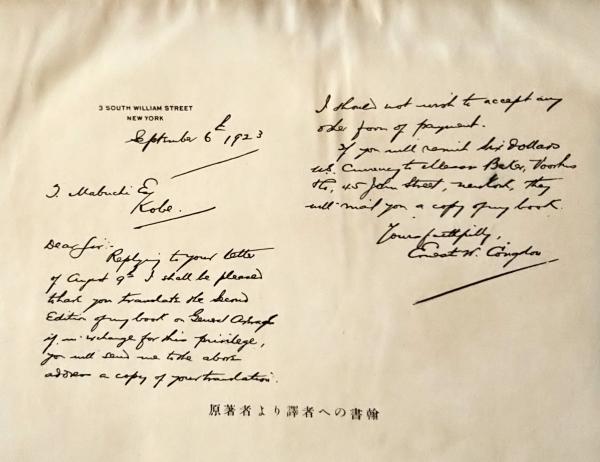 3 SOUTH WILLIAM STREET
NEW YORK
September 6th 1923
Mabuchi Esq
Kobe.
Dear Sir:-
Replying to your letter
of August 9th I shall be pleased
to have you translate the Second
Edition of my book on General Average
if in exchange for this privilege,
you will send me to the above
address a copy of your translation.
I should not wish to accept any
other form of payment.
If you will remit six Dollars
U.S. Currency to Messrs Baker, Voorhis
& Co, 45 John Street, New York, they
will mail you a copy of my book.
Yours faithfully,
Ernest W. Congdon
原著者より譯者への書翰